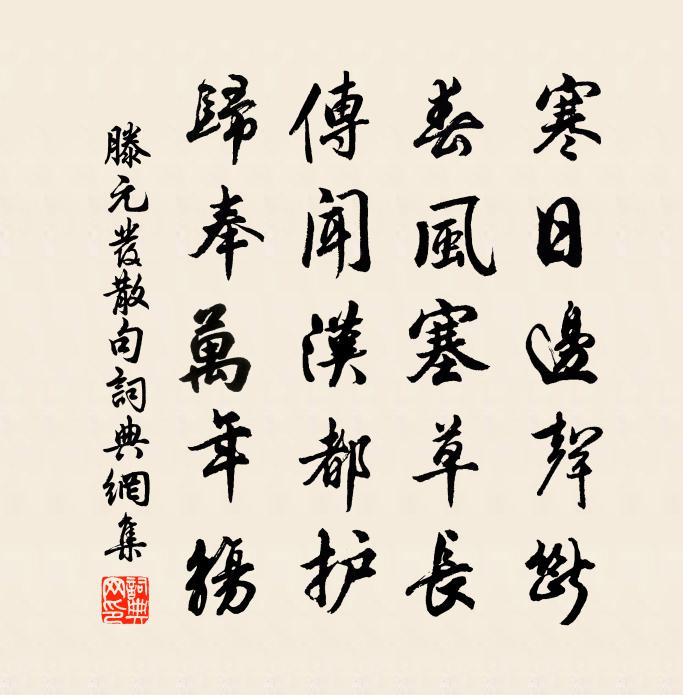 寒日邊聲斷
春風塞草長
傳聞漢都护
歸奉萬年觴
滕元發散句詞典網集
詞典网印